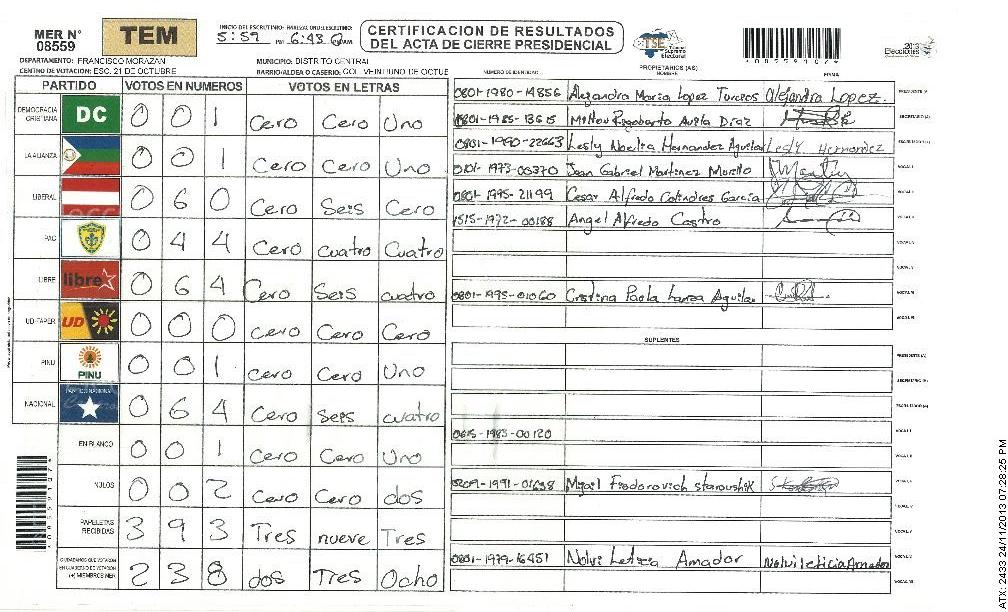 MER N° 08559
TEM
INICIO DEL ESCRUTINIO: FINALIZACION DEL ESCRUTINIO:
5:59 PM 6:43 AM
CERTIFICACION DE RESULTADOS
DEL ACTA DE CIERRE PRESIDENCIAL
TSE Tribunal Supremo Electoral
2013 Elecciones
DEPARTAMENTO: FRANCISCO MORAZAN
MUNICIPIO: DISTRITO CENTRAL
CENTRO DE VOTACION: ESC. 21 DE OCTUBRE
BARRIO/ALDEA O CASERIO: COL. VEINTIUNO DE OCTUE
PARTIDO VOTOS EN NUMEROS VOTOS EN LETRAS
DEMOCRACIA CRISTIANA DC 0 0 1 Cero Cero Uno
LA ALIANZA 0 0 Cero Cero Uno
LIBERAL 0 6 0 Cero Seis Cero
PAC 0 4 4 Cero cuatro Cuatro
LIBRE libre 0 6 4 Cero Seis cuatro
UD-FAPER UD 0 0 0 cero Cero Cero
PINU PINU 0 0 1 cero Cero Uno
NACIONAL 0 6 4 Cero Seis cuatro
EN BLANCO 0 0 1 Cero Cero Uno
NULOS 0 0 2 Cero Cero dos
PAPELETAS RECIBIDAS 3 9 3 Tres nueve Tres
CIUDADANOS QUE VOTARON EN CUADERNO DE VOTACION (+) MIEMBROS MER 2 3 8 dos Tres Ocho
NUMERO DE IDENTIDAD PROPIETARIOS (AS) NOMBRE FIRMA
0801-1980-14856 Alejandra Maria Lopez Turcios Alejandra Lopez. PRESIDENTE (A)
0801-1985-13615 Milton Rigoberto Avila Diaz SECRETARIO (A)
0801-1990-22663 Lesly Noelia Hernandez Aguilar Lesly Hernandez ESCRUTADOR (A)
0101-1973-00370 Juan Gabriel Martinez Murillo VOCAL I
0801-1995-21199 Cesar Alfredo Colindres Garcia
1515-1972-00188 Angel Alfredo Castro
0801-1995-01060 Cristina Paola Lanza Aguilar
SUPLENTES
PRESIDENTE (A)
SECRETARIO (A)
ESCRUTADOR (A)
0615-1983-00120 VOCAL I
0209-1991-01638 Mijail Fiodorovich staroushik
0801-1979-16451 Nolvi Leticia Amador Nolvi leticia Amador
0085591074
ATX: 2433 24/11/2013 07:28:25 PM